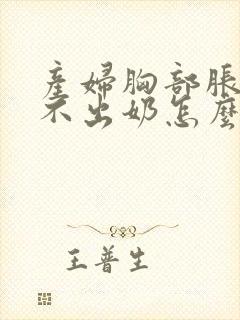 產婦胸部脹
不出奶怎麼
王普生